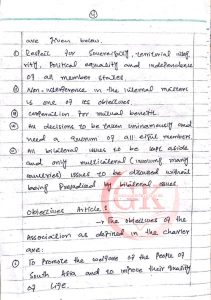 4
are given below.
① Respect for Sovereignty, territorial integ
rity, Political equality and independence
of all member states.
② Non-interference in the internal matters
is one of its objectives.
③ cooperation for mutual benefit.
④ All decisions to be taken unanimously and
need a quorum of all eight members.
⑤ All bilateral issues to be kept aside
and only multilateral (involving many
countries) issues to be discussed without
being Prejudiced by bilateral issues.
Objectives Article:
→ The objectives of the
Association as defined in the charter
are:
① To Promote the welfare of the People of
South Asia and to improve their quality
of life.
GK